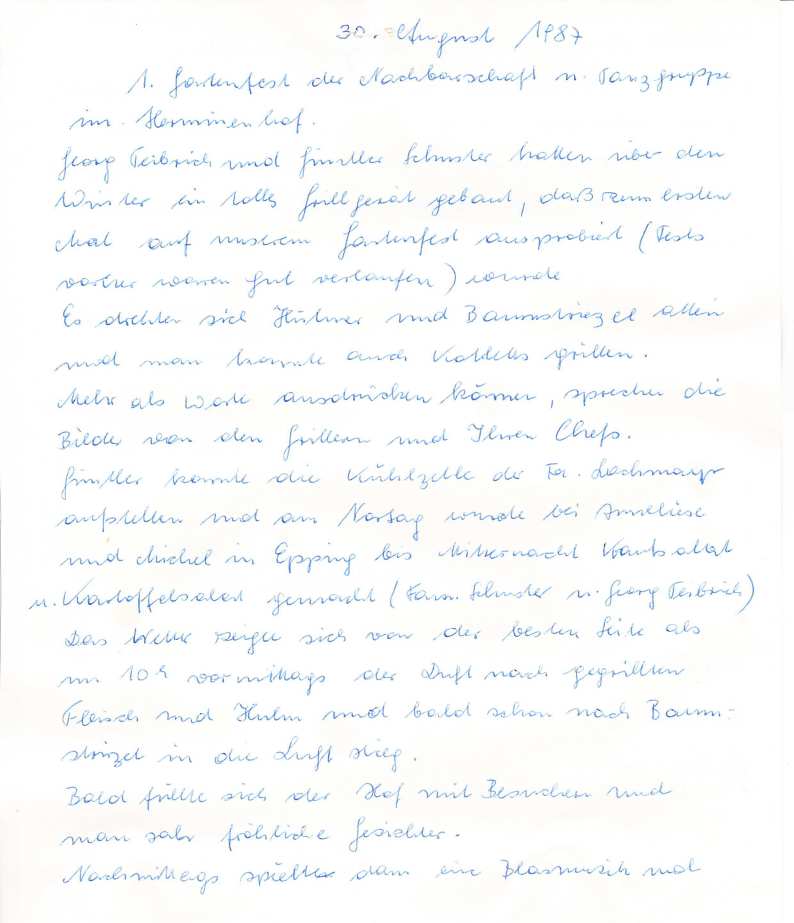 30. August 1987
1. Gartenfest der Nachbarschaft u. Tanzgruppe
im Herminenhof.
Georg Teibrich und Günther Schuster hatten über den
Winter ein tolles Grillgerät gebaut, daß zum ersten
Mal auf unserem Gartenfest ausprobiert (Tests
vorher waren gut verlaufen) wurde
Es drehten sich Hühner und Baumstriezel allein
und man konnte auch Kotletts grillen.
Mehr als Worte ausdrücken können, sprechen die
Bilder von den Grillern und Ihren Chefs.
Günther konnte die Kühlzelle der Fa. Lachmayr
aufstellen und am Vortag wurde bei Anneliese
und Michel in Epping bis Mitternacht Krautsalat
u. Kartoffelsalat gemacht (Fam. Schuster u. Georg Teibrich)
Das Wetter zeigte sich von der besten Seite als
um 10h vormittags der Duft nach gegrillten
Fleisch und Huhn und bald schon nach Baum-
striezel in die Luft stieg.
Bald füllte sich der Hof mit Besuchern und
man sah fröhliche Gesichter.
Nachmittags spielte dann eine Blasmusik und